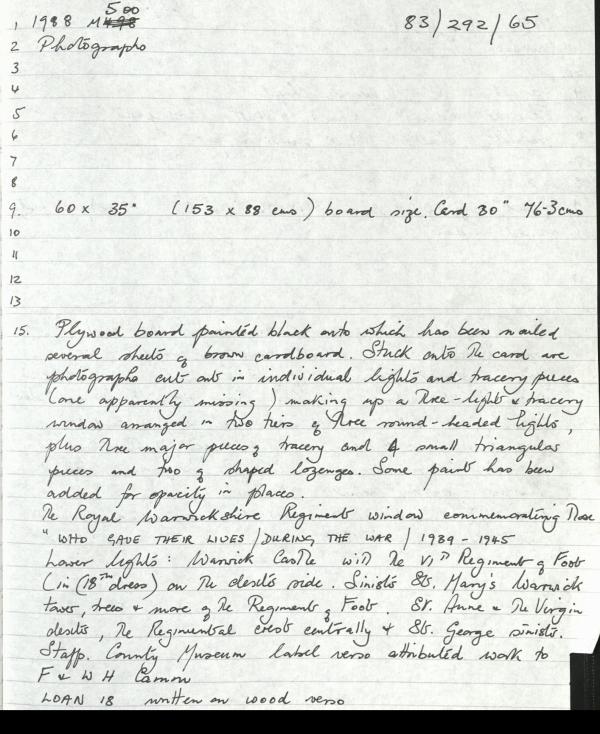 500
1 1988 M498 83/292/65
2 Photographs
3
4
5
6
7
8
9. 60 x 35" (153 x 88 cms) board size. Card 30" 76.3cms
10
11
12
13
15. Plywood board painted black onto which has been nailed
several sheets of brown cardboard. Stuck onto the card are
photographs cut out in individual lights and tracery pieces
(one apparently missing) making up a three-light & tracery
window arranged in two tiers of three round-headed lights,
plus three major pieces of tracery and 4 small triangular
pieces and two of shaped lozenges. Some paint has been
added for opacity in places.
The Royal Warwickshire Regiment window commemorating those
"WHO GAVE THEIR LIVES / DURING THE WAR / 1939 - 1945
Lower lights: Warwick Castle with the VIth Regiment of Foot
(in C18th dress) on the dexter side. Sinister St. Mary's Warwick
tower, trees & more of the Regiment of Foot. St. Anne & the Virgin
dexter, the Regimental crest centrally & St. George sinister.
Staff. County Museum label verso attributed work to
F & W H Camm
LOAN 18 written on wood verso